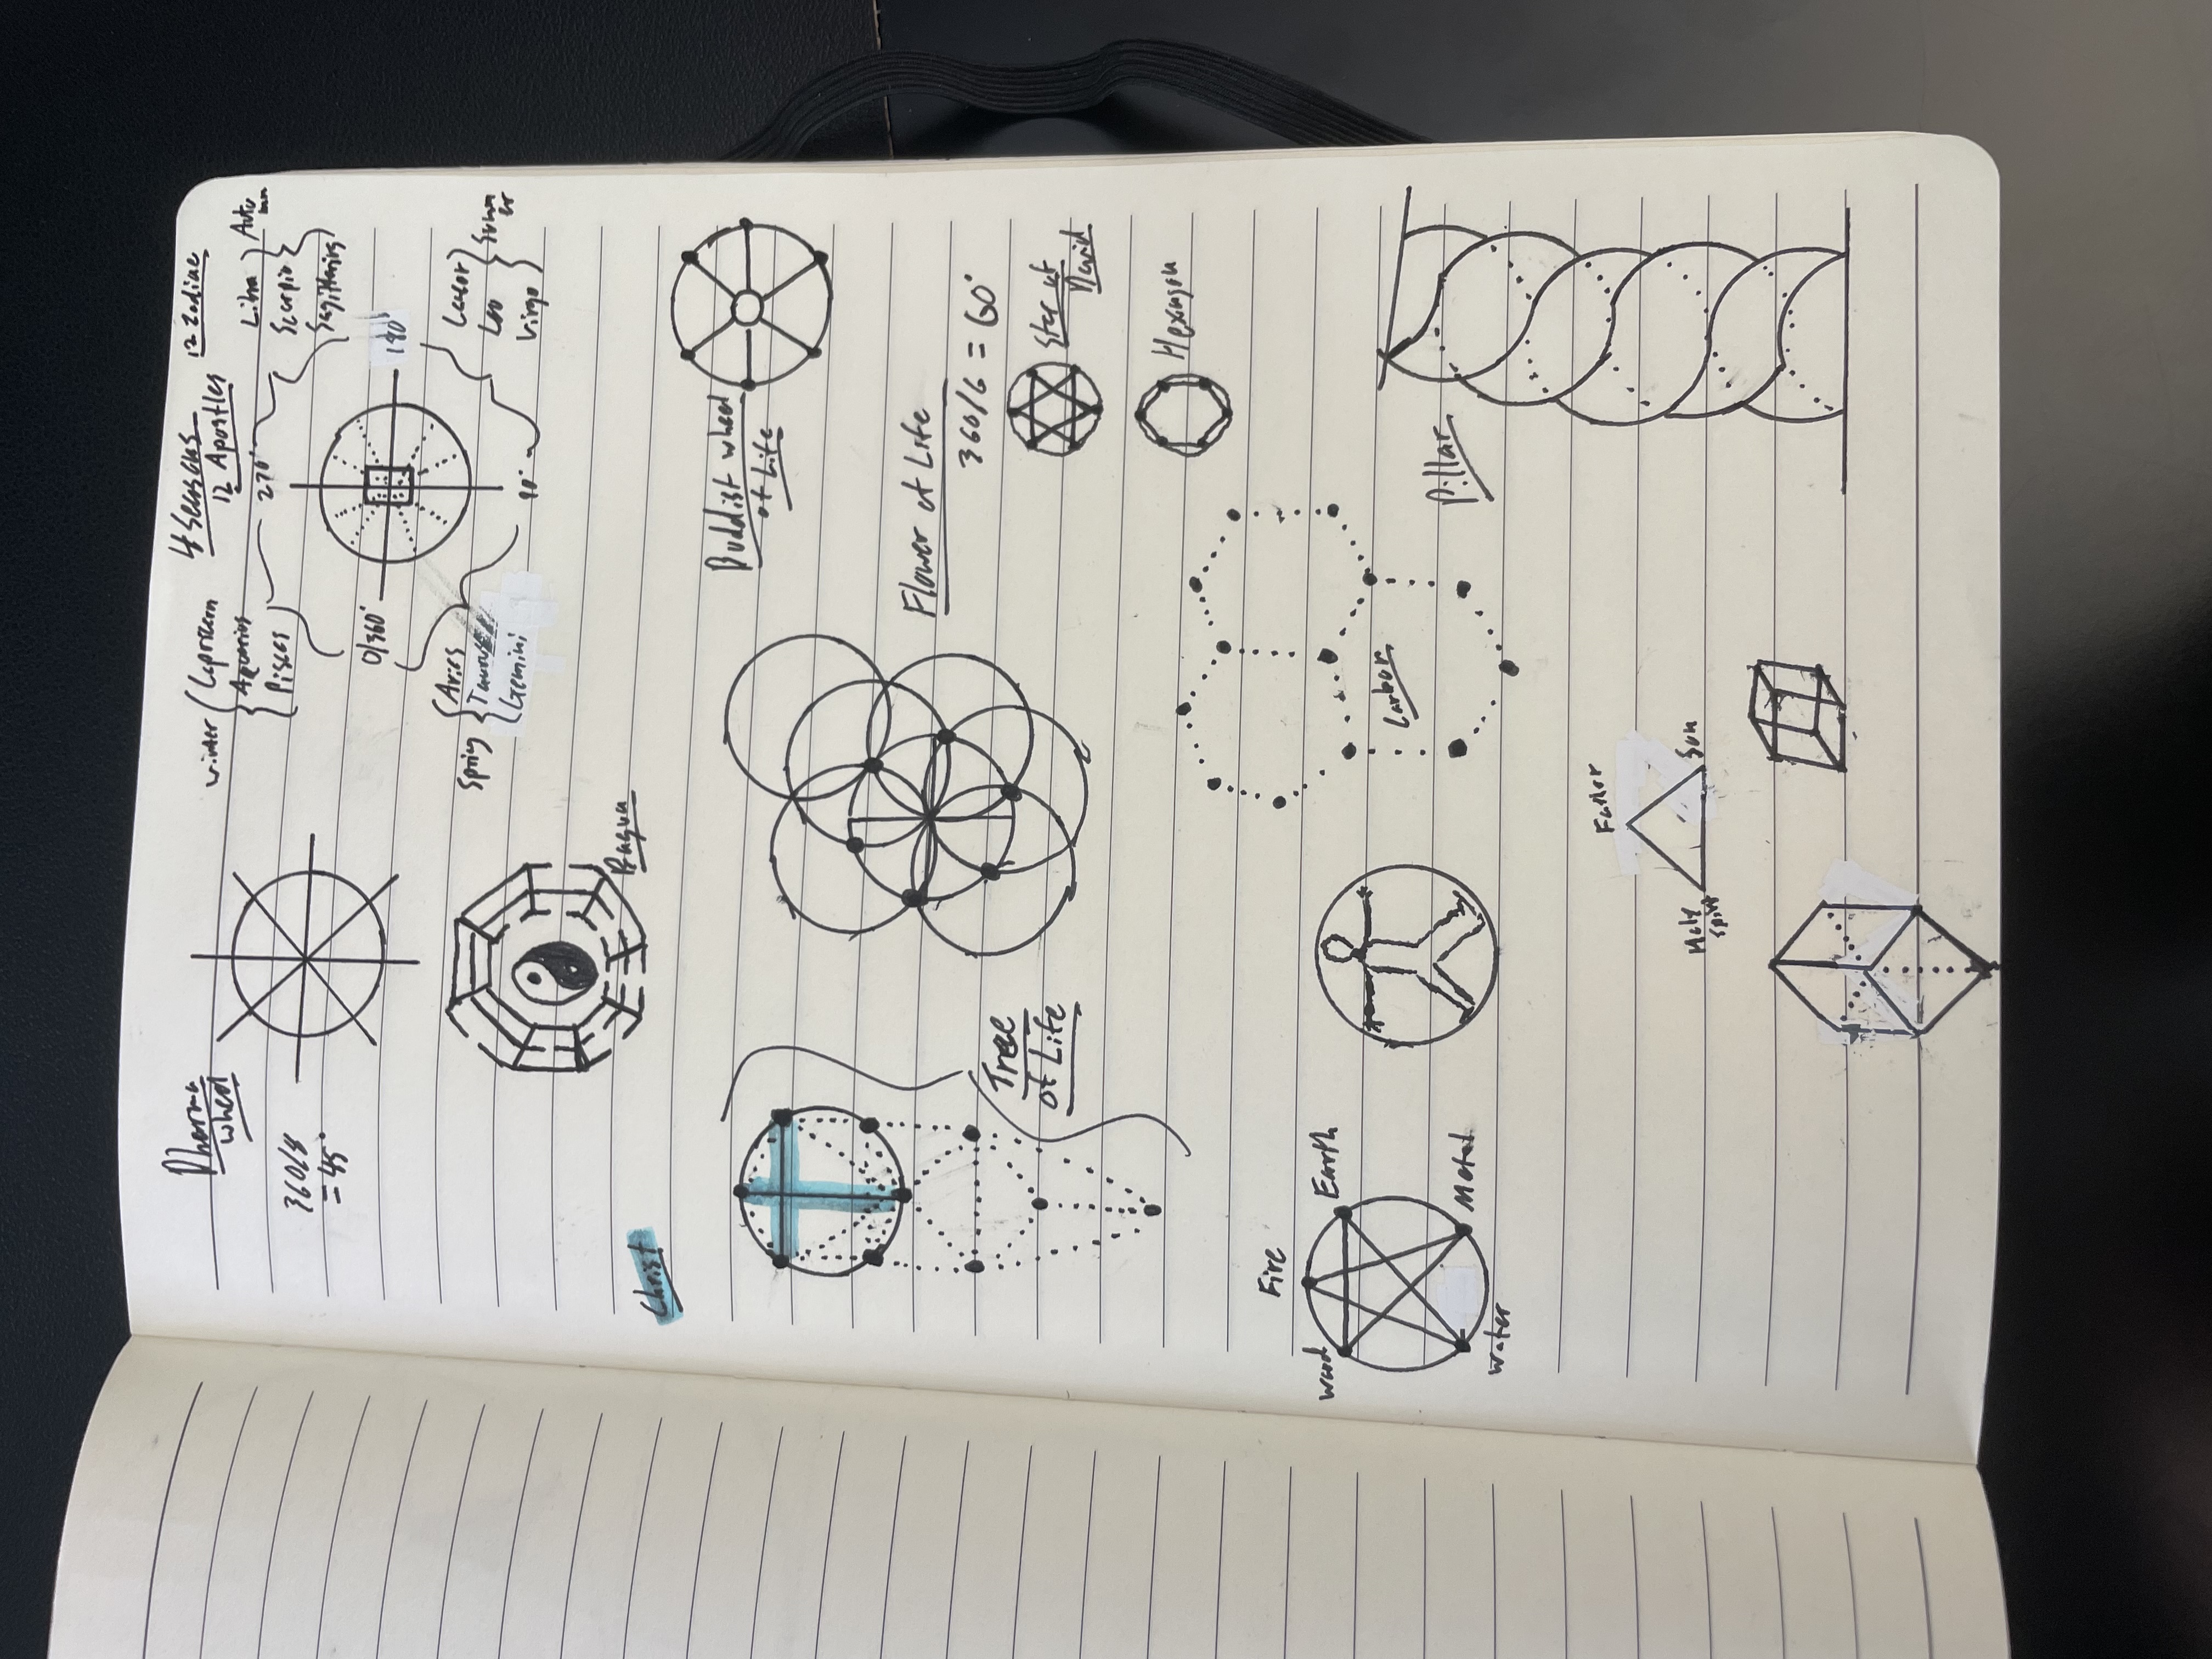 Dharma
wheel
360/8
= 45°
4 Seasons
12 Apostles
12 Zodiac
Winter
Capricorn
Aquarius
Pisces
270°
Libra
Scorpio
Sagittarius
Autu
mn
0/360°
180°
Spring
Aries
Taurus
Gemini
90°
Cancer
Leo
Virgo
Summ
er
Bagua
Christ
Buddist wheel
of Life
Flower of Life
360/6 = 60°
Tree
of Life
Star of
David
Hexagon
Fire
Wood
Earth
Water
Metal
Carbon
Pillar
Father
Holy
Spirit
Son